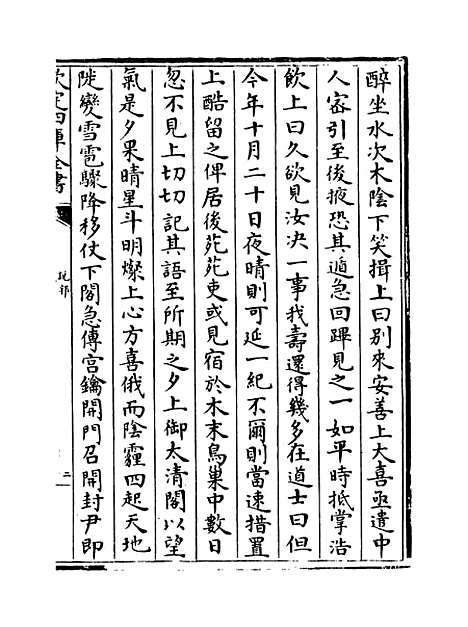 醉坐水次木陰下笑揖上曰別來安善上大喜亟遣中
人宻引至後掖恐其遁急回蹕見之一如平時抵掌浩
飲上曰久欲見汝決一事我壽還得幾多在道士曰但
今年十月二十日夜晴則可延一紀不爾則當速措置
上酷留之俾居後苑苑吏或見宿於木末鳥巢中數日
忽不見上切切記其語至所期之夕上御太清閣以望
氣是夕果晴星斗明燦上心方喜俄而陰霾四起天地
陡變雪雹驟降移仗下閣急傳宫鑰開門召開封尹即
欽定四庫全書
說郛
二